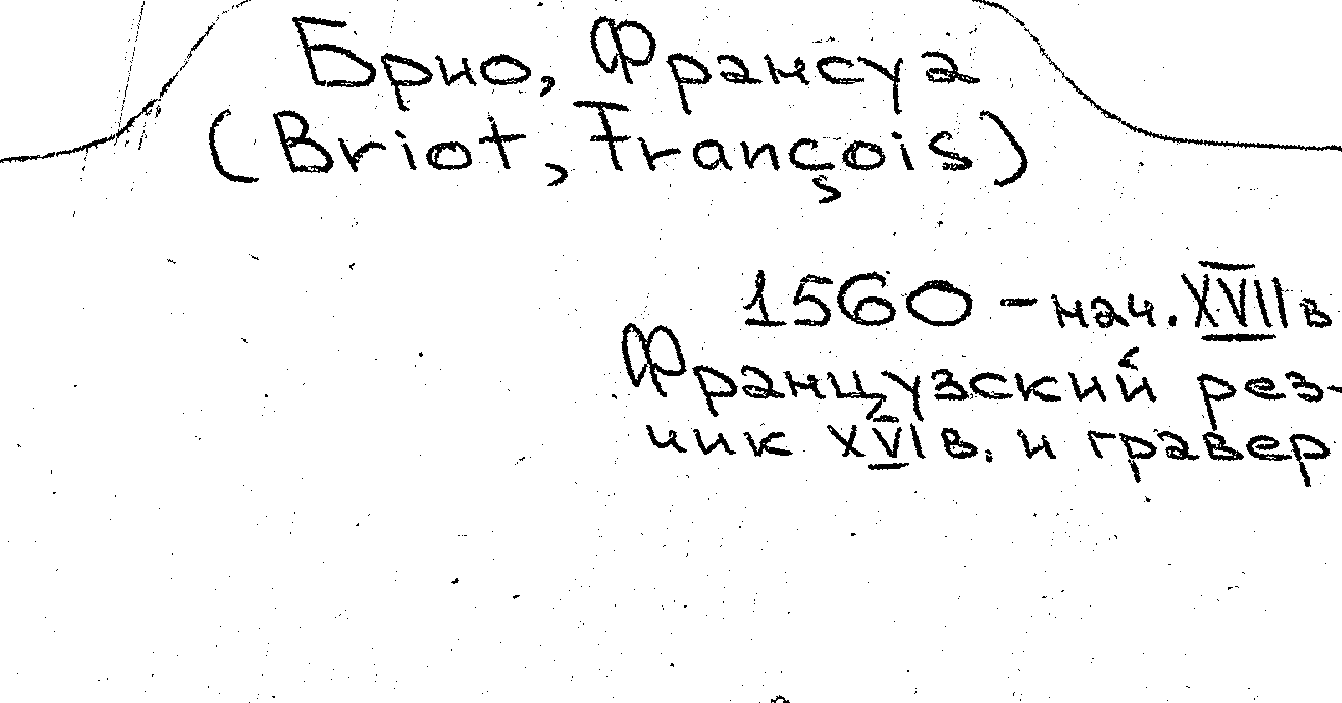 Брио, Франсуа
(Briot, François)
1560 – нач. XVII в
Французский рез-
чик XVI в. и гравер